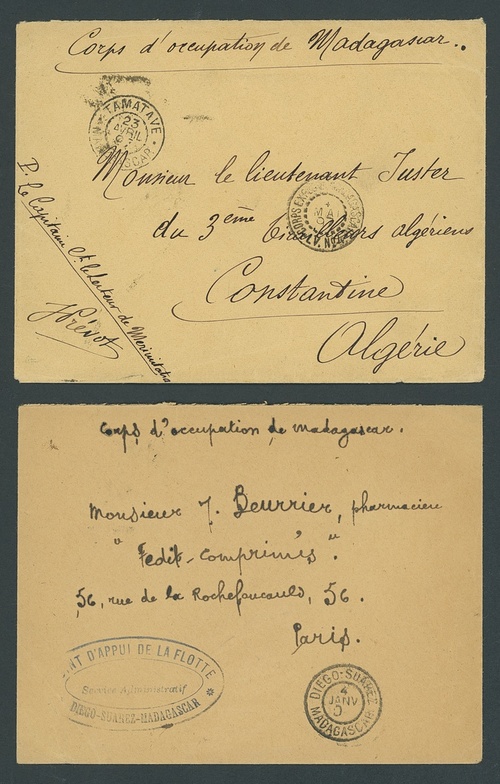 Corps d'occupation de Madagascar.
TAMATAVE
23
AVRIL
Monsieur le lieutenant Juster
du 3ème Tirailleurs algériens
Constantine
Algérie
P. Le Capitaine
Prévot
Corps d'occupation de Madagascar.
Monsieur J. Beurrier, pharmacien
" Fedit-comprimés "
56, rue de la Rochefoucauld, 56.
Paris.
INT D'APPUI DE LA FLOTTE
Service Administratif
DIEGO-SUAREZ-MADAGASCAR
DIEGO-SUAREZ
4
JANV
MADAGASCAR